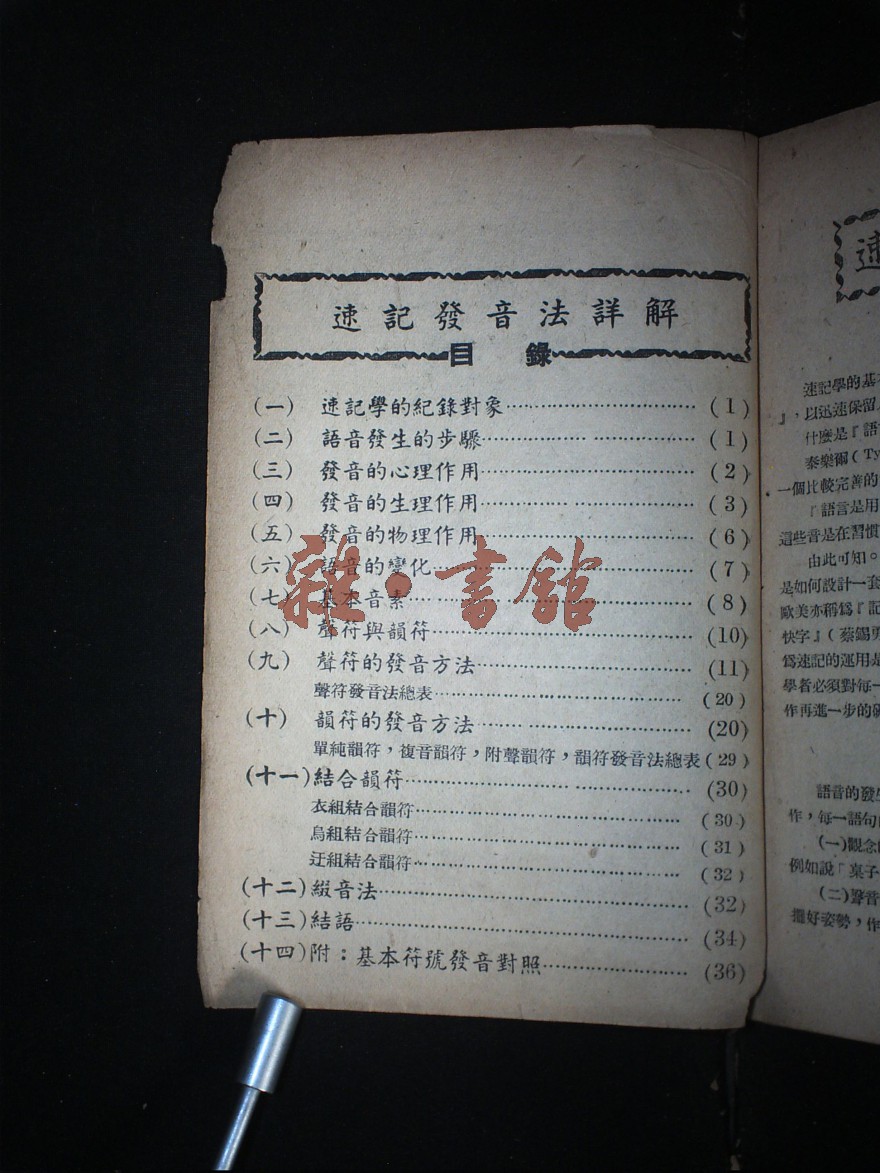 速記發音法詳解
目錄
(一) 速記學的紀錄對象…………………………(1)
(二) 語音發生的步驟…………………………(1)
(三) 發音的心理作用…………………………(2)
(四) 發音的生理作用…………………………(3)
(五) 發音的物理作用…………………………(6)
(六) 語音的變化…………………………(7)
(七) 基本音素…………………………(8)
(八) 聲符與韻符…………………………(10)
(九) 聲符的發音方法…………………………(11)
聲符發音法總表…………………………(20)
(十) 韻符的發音方法…………………………(20)
單純韻符，複音韻符，附聲韻符，韻符發音法總表(29)
(十一)結合韻符…………………………(30)
衣組結合韻符…………………………(30)
烏組結合韻符…………………………(31)
迂組結合韻符…………………………(32)
(十二)綴音法…………………………(32)
(十三)結語…………………………(34)
(十四)附：基本符號發音對照…………………………(36)
雜·書館
速
速記學的基
』，以迅速保留
什麼是『語
泰樂爾(Ty
一個比較完善的
『語言是用
這些音是在習慣
由此可知。
是如何設計一套
歐美亦稱爲『記
快字』(蔡錫勇
爲速記的運用是
學者必須對每一
作再進一步的
語音的發生
作，每一語句
(一)觀念
例如說「桌子
(二)聲音
擺好姿勢，作